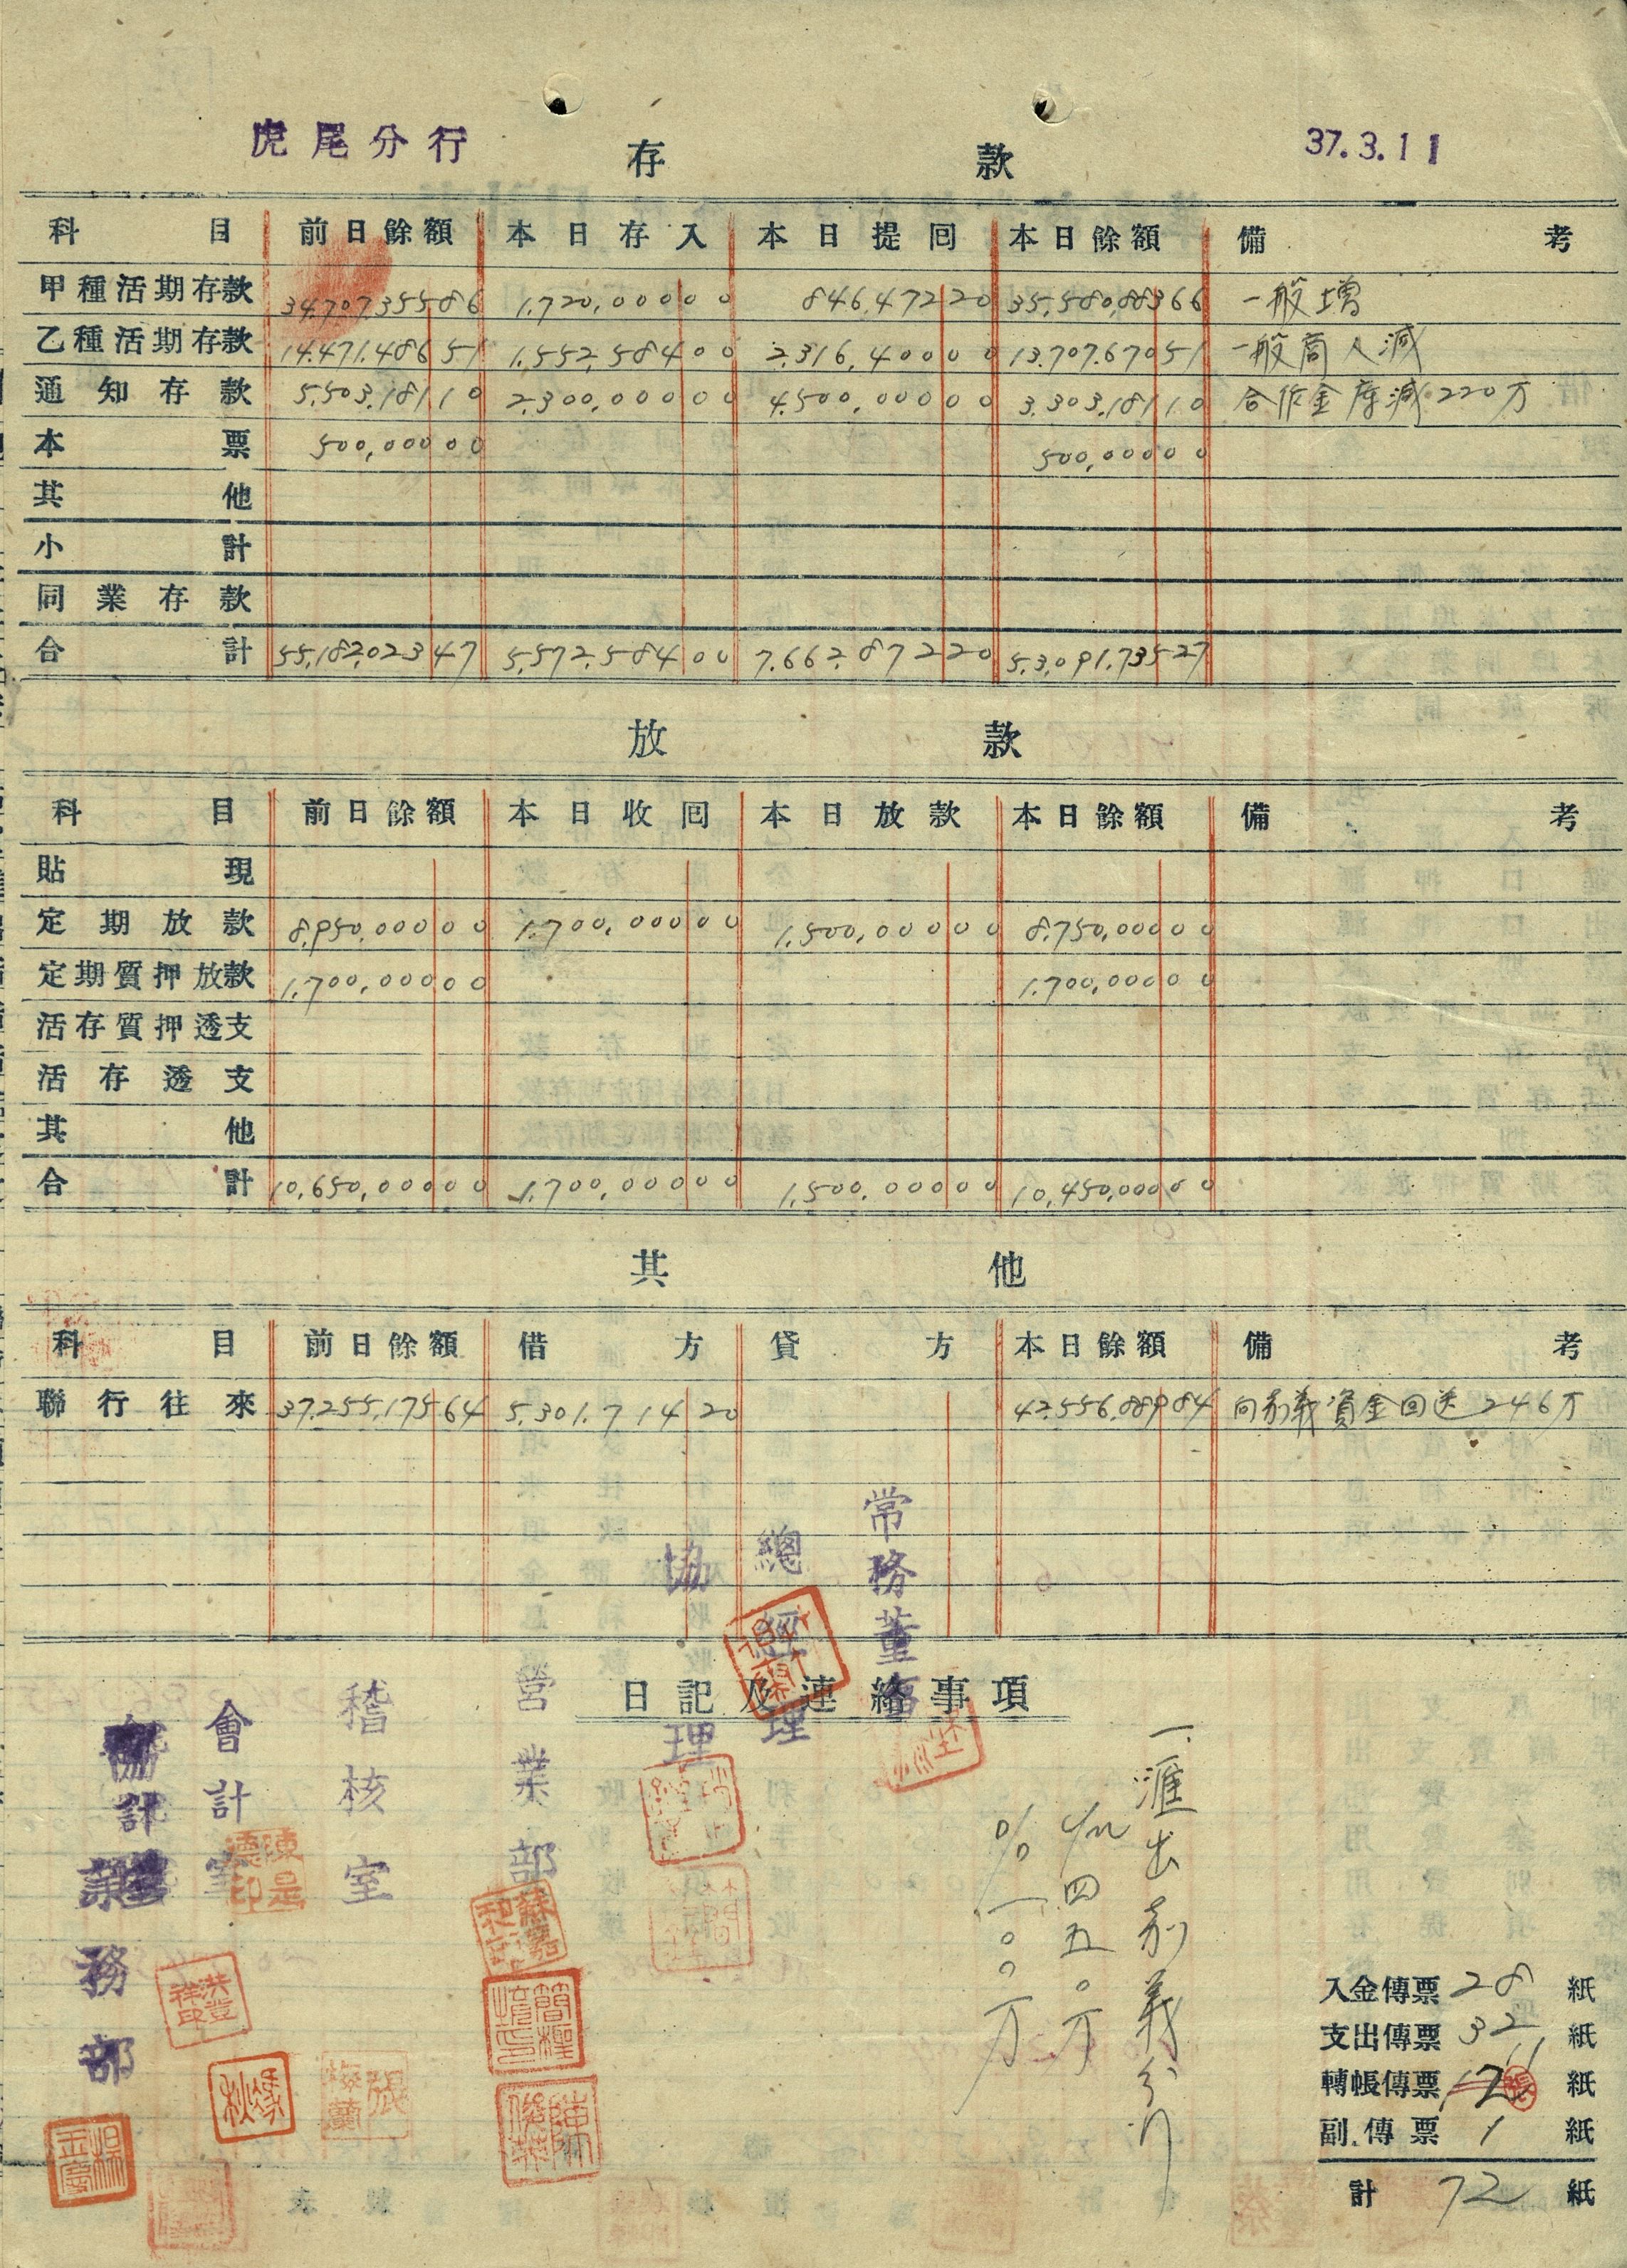 虎尾分行 存款 37.3.11
科目 前日餘額 本日存入 本日提囘 本日餘額 備考
甲種活期存款 34,707,355 86 1,720,000 00 846,472 20 35,580,883 66 一般增
乙種活期存款 14,471,486 51 1,552,584 00 2,316,400 00 13,707,670 51 一般商人減
通知存款 5,503,181 10 2,300,000 00 4,500,000 00 3,303,181 10 合作金庫減220万
本票 500,000 00 500,000 00
其他
小計
同業存款
合計 55,182,023 47 5,572,584 00 7,662,872 20 53,091,735 27
放款
科目 前日餘額 本日收囘 本日放款 本日餘額 備考
貼現
定期放款 8,950,000 00 1,700,000 00 1,500,000 00 8,750,000 00
定期質押放款 1,700,000 00 1,700,000 00
活存質押透支
活存透支
其他
合計 10,650,000 00 1,700,000 00 1,500,000 00 10,450,000 00
其他
科目 前日餘額 借方 貸方 本日餘額 備考
聯行往來 37,255,175 64 5,301,714 20 42,556,889 84 向嘉義資金回送246万
日記及連絡事項
常務董事
總經理
協理
營業部
稽核室
會計室
務部
一.滙出嘉義分行
四五〇万
一〇〇万
蘇嘉和印
簡樫堉印
陳俊英
陳是德印
洪登祥印
張梅蘭
楊玉慶
入金傳票 28 紙
支出傳票 32 紙
轉帳傳票 11 紙
副傳票 1 紙
計 72 紙